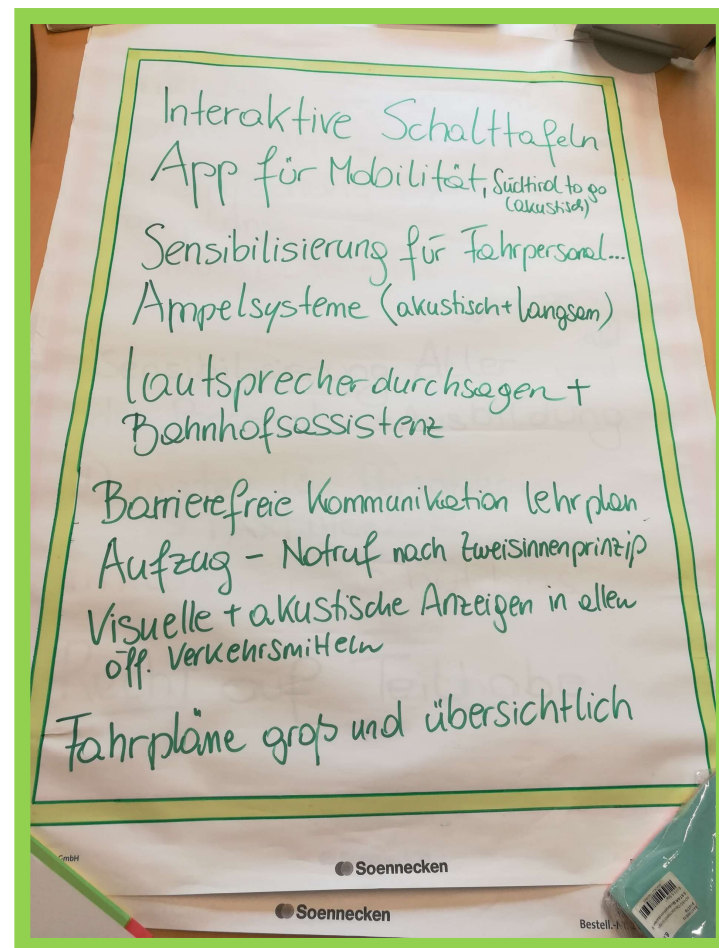 Interaktive Schalttafeln
App für Mobilität, Südtirol to go
(akustisch)
Sensibilisierung für Fahrpersonal...
Ampelsysteme (akustisch + langsam)
Lautsprecherdurchsagen +
Bahnhofsassistenz
Barrierefreie Kommunikation Lehrplan
Aufzug - Notruf nach Zweisinnenprinzip
Visuelle + akustische Anzeigen in allen
öff. Verkehrsmitteln
Fahrpläne groß und übersichtlich
GmbH
Soennecken
Soennecken